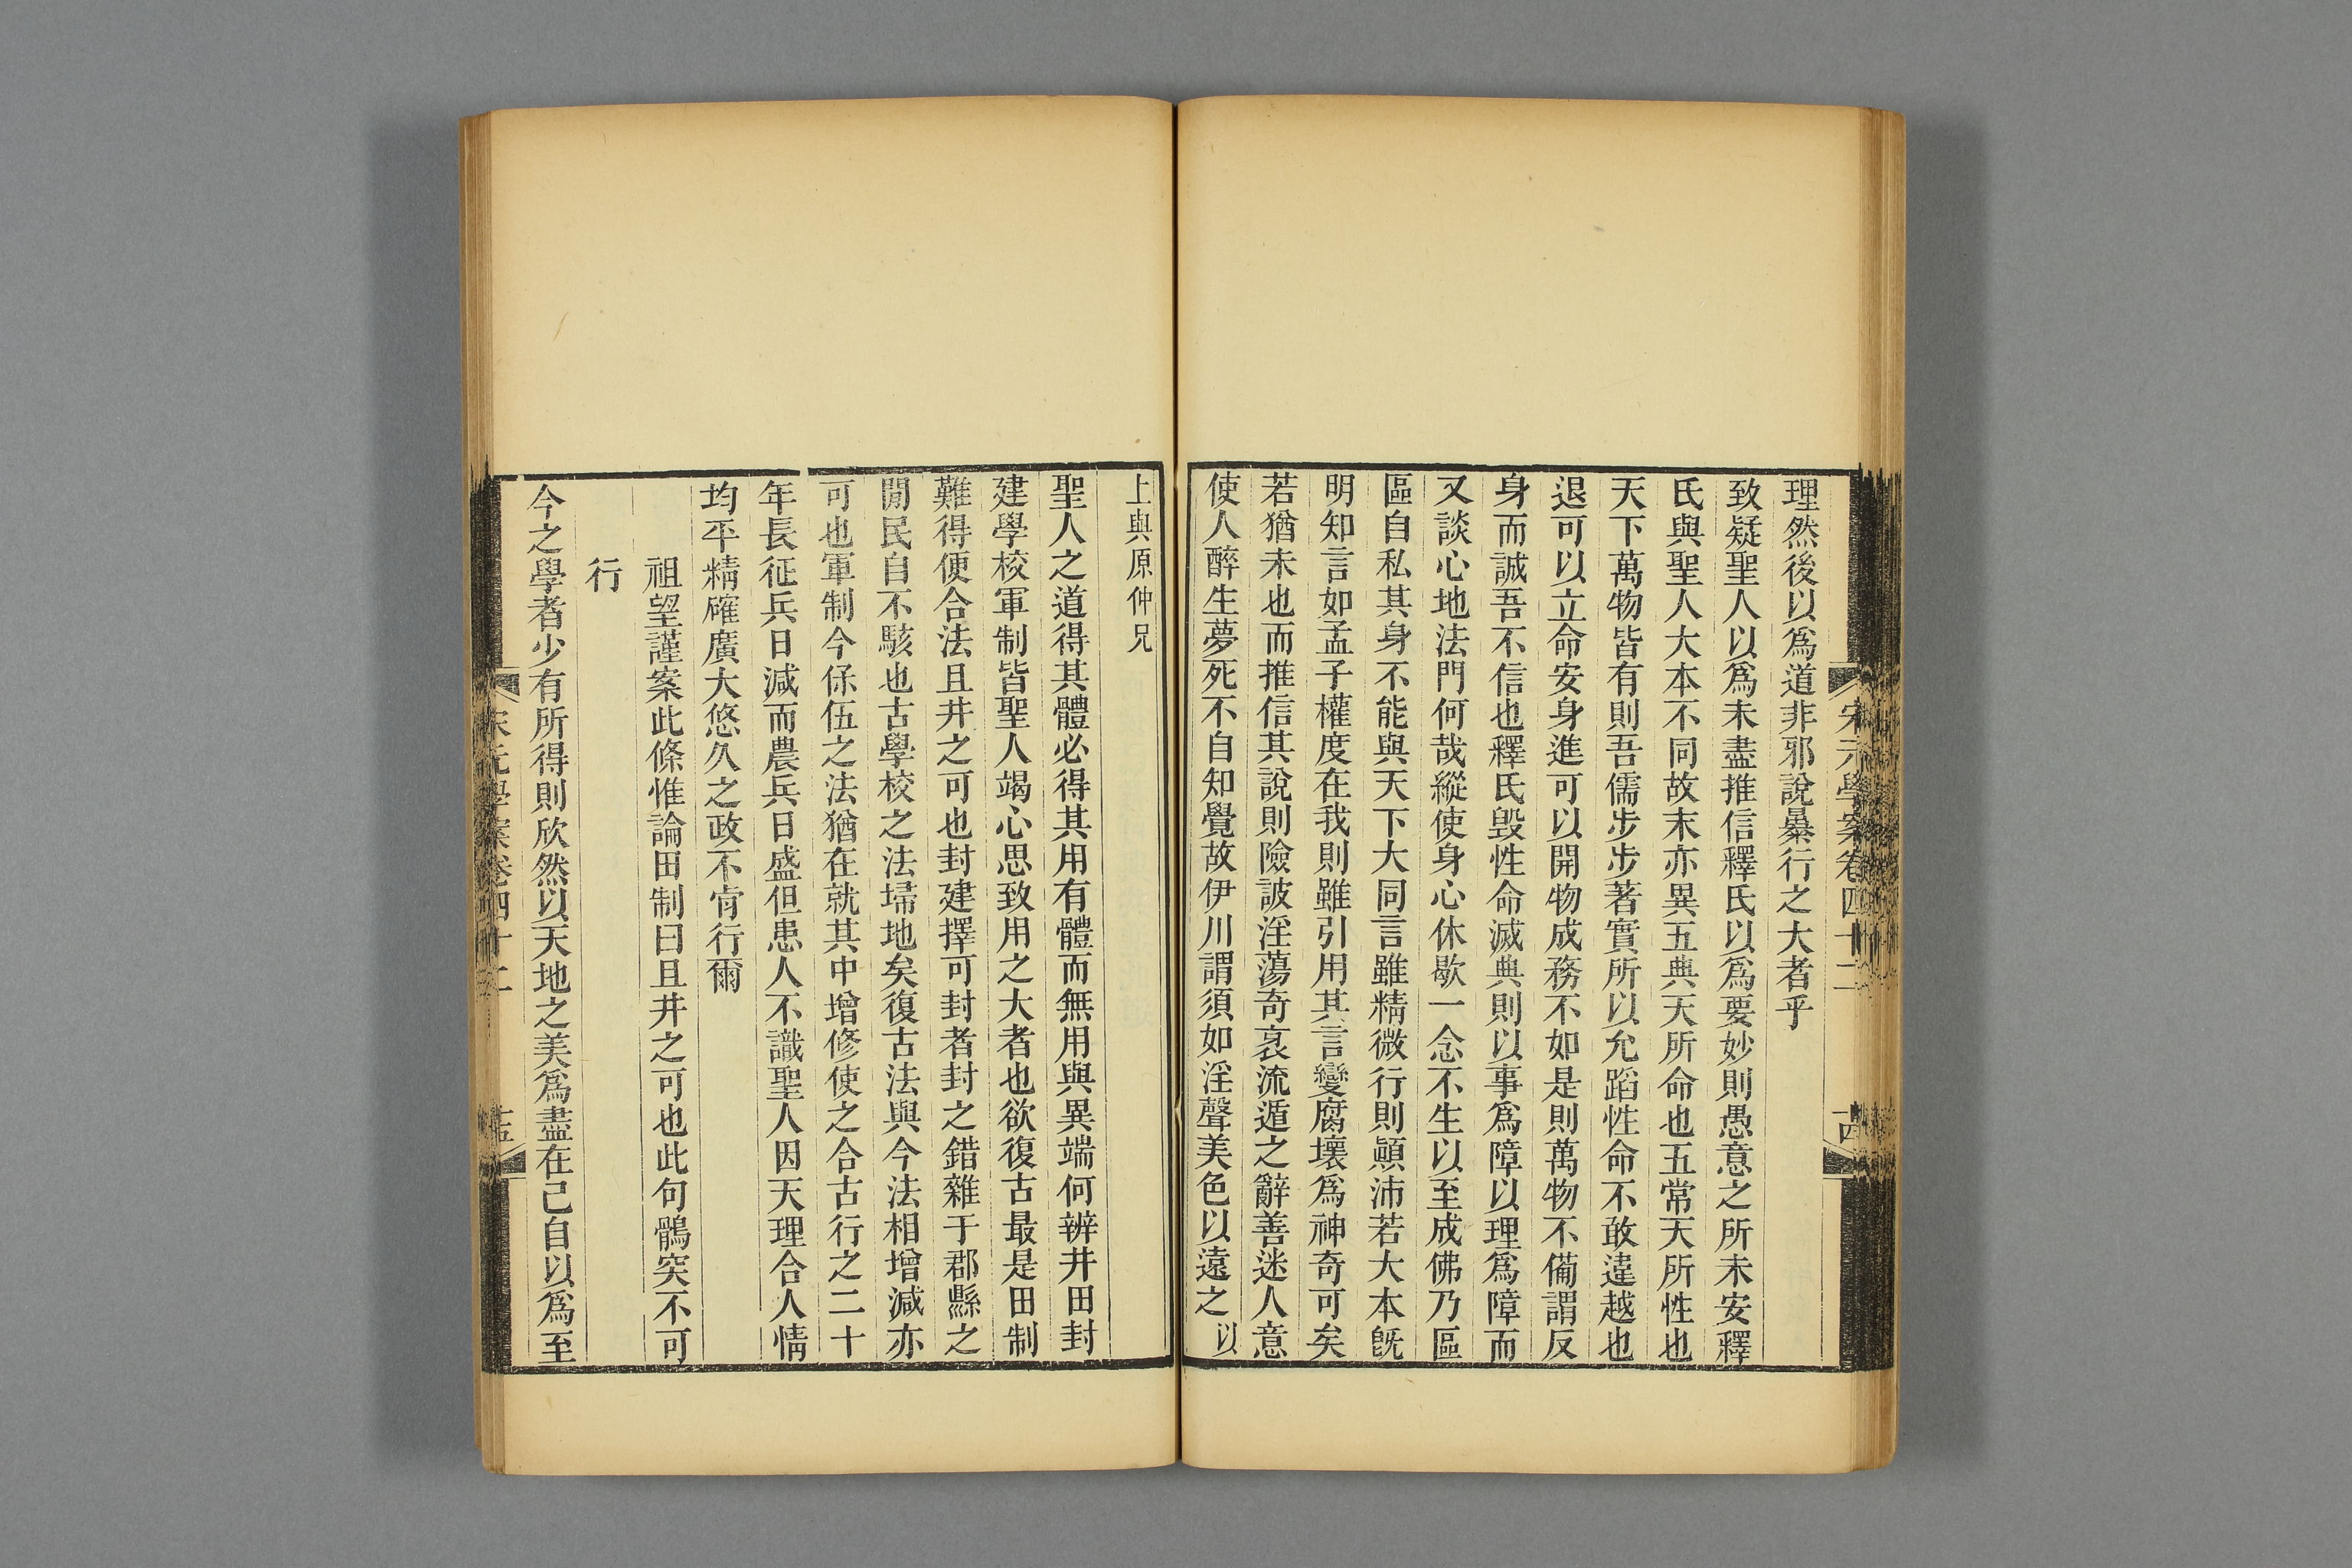 宋元學案卷四十二
十四
理然後以爲道非邪說暴行之大者乎
致疑聖人以爲未盡推信釋氏以爲要妙則愚意之所未安釋
氏與聖人大本不同故末亦異五典天所命也五常天所性也
天下萬物皆有則吾儒步步著實所以允蹈性命不敢違越也
退可以立命安身進可以開物成務不如是則萬物不備謂反
身而誠吾不信也釋氏毀性命滅典則以事爲障以理爲障而
又談心地法門何哉縱使身心休歇一念不生以至成佛乃區
區自私其身不能與天下大同言雖精微行則顚沛若大本旣
明知言如孟子權度在我則雖引用其言變腐壞爲神奇可矣
若猶未也而推信其說則險詖淫蕩奇衺流遁之辭善迷人意
使人醉生夢死不自知覺故伊川謂須如淫聲美色以遠之以
上與原仲兄
聖人之道得其體必得其用有體而無用與異端何辨井田封
建學校軍制皆聖人竭心思致用之大者也欲復古最是田制
難得便合法且井之可也封建擇可封者封之錯雜于郡縣之
閒民自不駭也古學校之法埽地矣復古法與今法相增減亦
可也軍制今保伍之法猶在就其中增修使之合古行之二十
年長征兵日減而農兵日盛但患人不識聖人因天理合人情
均平精確廣大悠久之政不肯行爾
祖望謹案此條惟論田制曰且井之可也此句鶻突不可
行
今之學者少有所得則欣然以天地之美爲盡在己自以爲至
宋元學案卷四十二